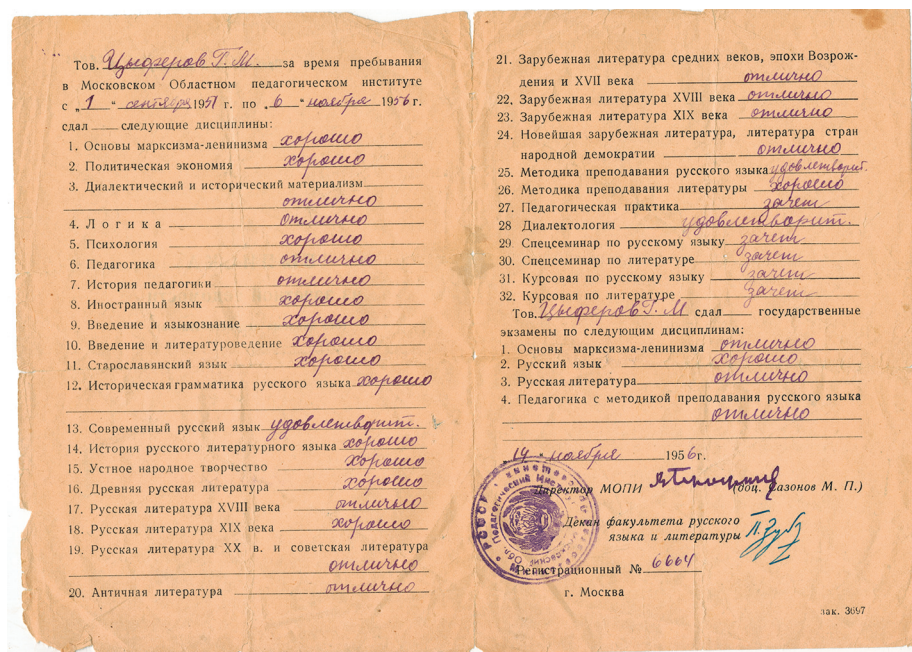 Тов. Цыферов Г. М. за время пребывания
в Московском Областном педагогическом институте
с „1“ сентября 1951 г. по „6“ ноября 1956 г.
сдал следующие дисциплины:
1. Основы марксизма-ленинизма хорошо
2. Политическая экономия хорошо
3. Диалектический и исторический материализм
отлично
4. Логика отлично
5. Психология хорошо
6. Педагогика отлично
7. История педагогики отлично
8. Иностранный язык хорошо
9. Введение и языкознание хорошо
10. Введение и литературоведение хорошо
11. Старославянский язык хорошо
12. Историческая грамматика русского языка хорошо
13. Современный русский язык удовлетворит.
14. История русского литературного языка хорошо
15. Устное народное творчество хорошо
16. Древняя русская литература хорошо
17. Русская литература XVIII века отлично
18. Русская литература XIX века хорошо
19. Русская литература XX в. и советская литература
отлично
20. Античная литература отлично
21. Зарубежная литература средних веков, эпохи Возрож-
дения и XVII века отлично
22. Зарубежная литература XVIII века отлично
23. Зарубежная литература XIX века отлично
24. Новейшая зарубежная литература, литература стран
народной демократии отлично
25. Методика преподавания русского языка удовлетворит.
26. Методика преподавания литературы хорошо
27. Педагогическая практика зачет
28 Диалектология удовлетворит.
29. Спецсеминар по русскому языку зачет
30. Спецсеминар по литературе зачет
31. Курсовая по русскому языку зачет
32. Курсовая по литературе зачет
Тов. Цыферов Г. М сдал государственные
экзамены по следующим дисциплинам:
1. Основы марксизма-ленинизма отлично
2. Русский язык хорошо
3. Русская литература отлично
4. Педагогика с методикой преподавания русского языка
отлично
14 ноября 1956 г.
Директор МОПИ (доц. Сазонов М. П.)
Декан факультета русского
языка и литературы
Регистрационный № 6664
г. Москва
зак. 3697
РСФСР